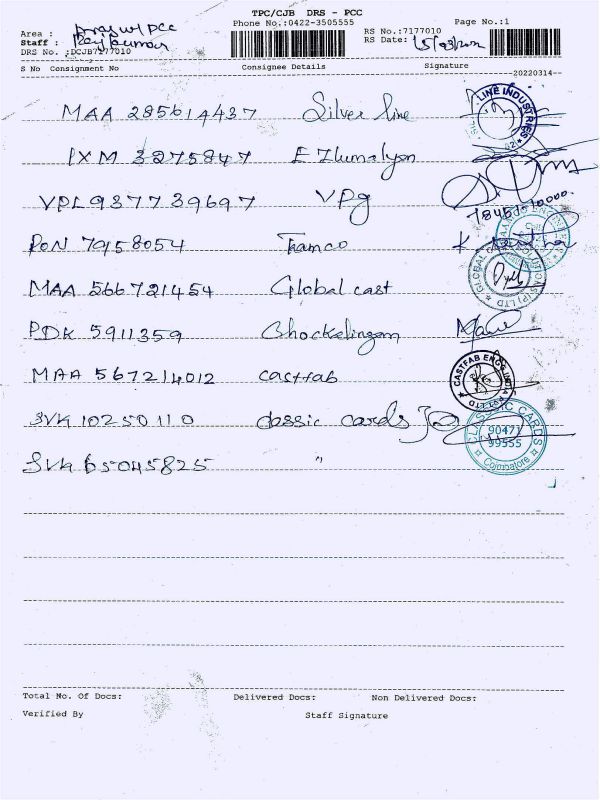 TPC/CJB DRS - PCC
Phone No.:0422-3505555
Page No.:1
Area :
Staff : Rajkumar
DRS No. :DCJB7177010
RS No.:7177010
RS Date: 15/03/2022
S No Consignment No Consignee Details Signature
--20220314--
MAA 285614437 Silver line
IXM 3275847 E Ilumalyan
VPL 937739697 VPG
PON 79158054 Framco
MAA 566721454 Global cast
PDK 5911359 Chockelingam
MAA 567214012 Castfab
SVK 10250110 classic cards
SVK 65045825 "
LINE INDUSTRIES
CASTFAB ENGG INDIA PVT LTD
CLASSIC CARDS
90471
99555
Coimbatore
Total No. Of Docs: Delivered Docs: Non Delivered Docs:
Verified By Staff Signature